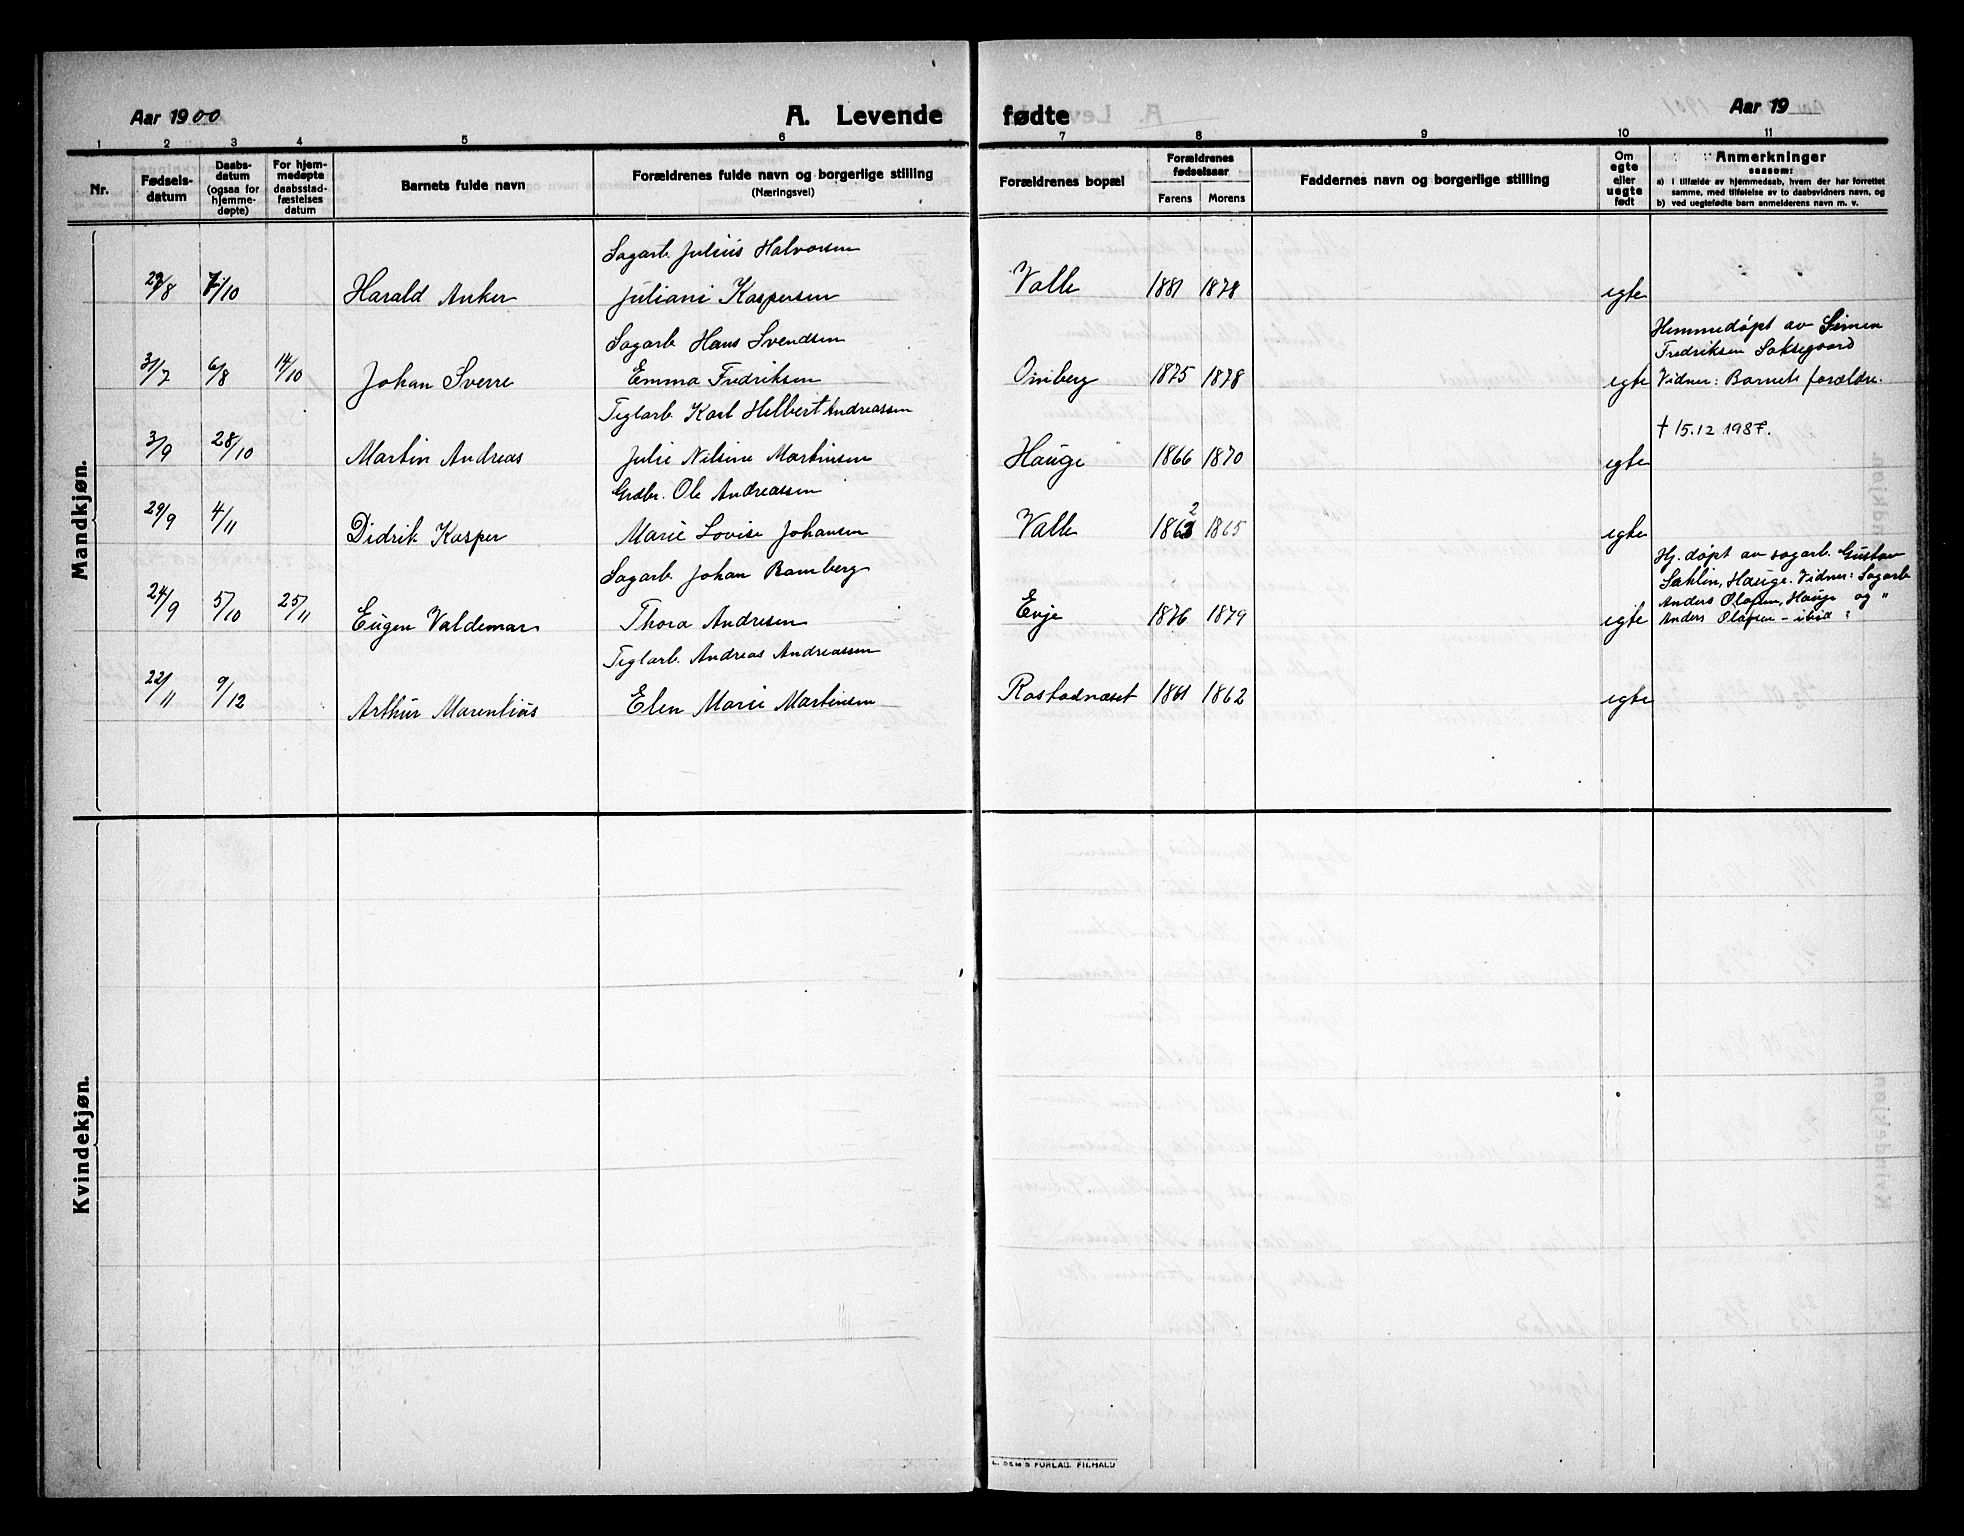 Aar 1900
A. Levende fødte
Aar 19
1 2 3 4 5 6 7 8 9 10 11
Nr.
Fødsels-
datum
Daabs-
datum
(ogsaa for
hjemme-
døpte)
For hjem-
medøpte
daabsstad-
fæstelses
datum
Barnets fulde navn
Forældrenes fulde navn og borgerlige stilling
(Næringsvei)
Forældrenes bopæl
Forældrenes
fødselsaar
Farens Morens
Faddernes navn og borgerlige stilling
Om
egte
eller
uegte
født
Anmerkninger
saasom:
a) i tilfælde av hjemmedaab, hvem der har forrettet
samme, med tilføielse av to daabsvidners navn, og
b) ved uegtefødte barn anmelderens navn m. v.
Mandkjøn.
Sagarb. Julius Halvorsen
/8 7/10 Harald Anker Juliani Kaspersen Valle 1881 1878 egte
Sagarb. Hans Svendsen
Hjemmedøpt av Simen
Fredriksen Saksegaard
31/7 6/8 14/10 Johan Sverre Emma Fredriksen Omberg 1875 1878 egte Vidner: Barnets forældre.
Teglarb. Karl Helbert Andreassen
† 15.12 1987.
3/9 28/10 Martin Andreas Julie Nilsine Martinsen Hauge 1866 1870 egte
Grdbr. Ole Andreassen
29/9 4/11 Didrik Kasper Marie Lovise Johansen Valle 1862 1865 egte
Sagarb. Johan Ramberg
Hj. døpt av sagarb. Gustav
Sahlin, Hauge. Vidner: Sagarb.
Anders Olafsen, Hauge og "
24/9 5/10 25/11 Eugen Valdemar Thora Andresen Evje 1876 1879 egte Anders Olafsen - ibid
Teglarb. Andreas Andreassen
22/11 9/12 Arthur Marentius Elen Marie Martinsen Rostadnæset 1861 1862 egte
Kvindekjøn.
E. SEM'S FORLAG, FR.HALD